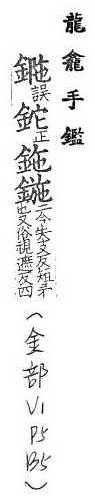 龍龕手鑑
誤鉈正鉇鍦二今失支反短矛也又俗視遮反四
(金部V1P5B5)